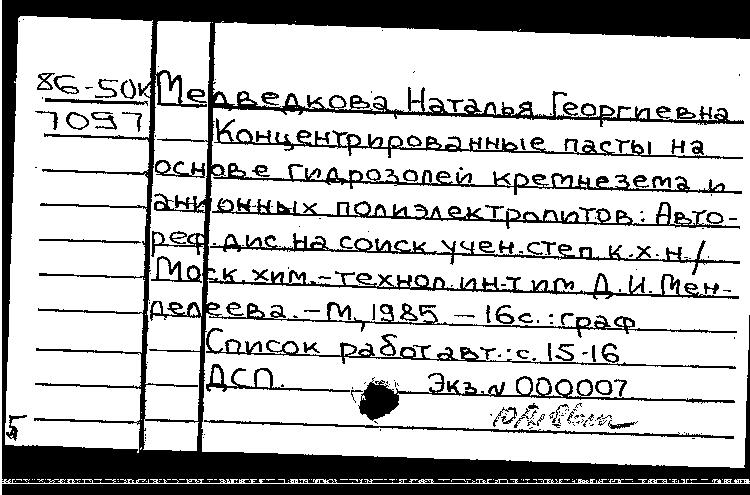 86-50к Медведкова, Наталья Георгиевна
7097 Концентрированные пасты на
основе гидрозолей кремнезема и
анионных полиэлектролитов: Авто-
реф. дис на соиск. учен. степ. к.х.н /
Моск. хим.-технол. ин-т им. Д.И. Мен-
делеева. - М, 1985. - 16с.: граф
Список работ авт.: с. 15-16
ДСП. Экз. N 000007